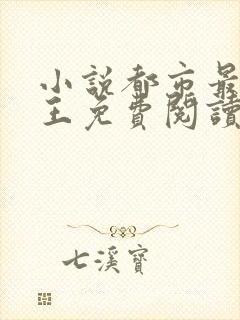 小説都市最
王免費閱讀
七溪寶